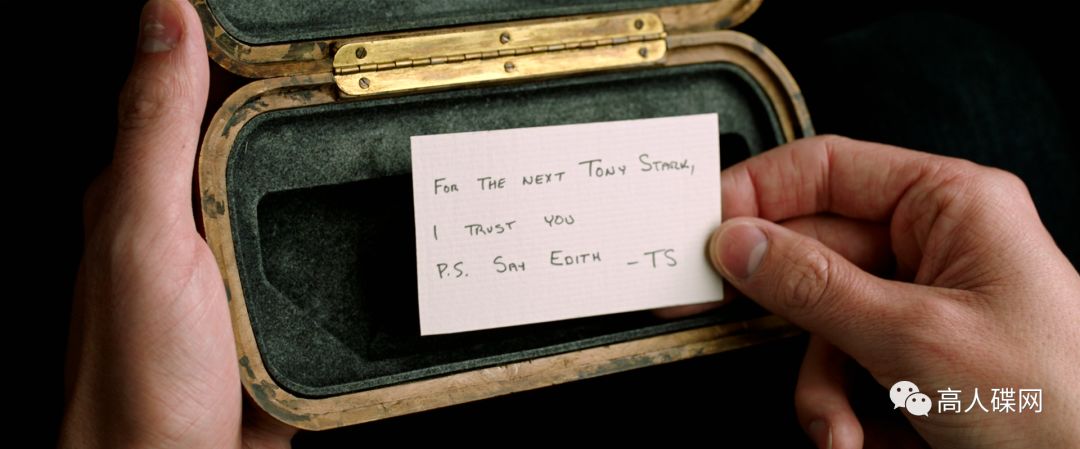 FOR THE NEXT TONY STARK,
I TRUST YOU
P.S. SAY EDITH -TS
高人碟网